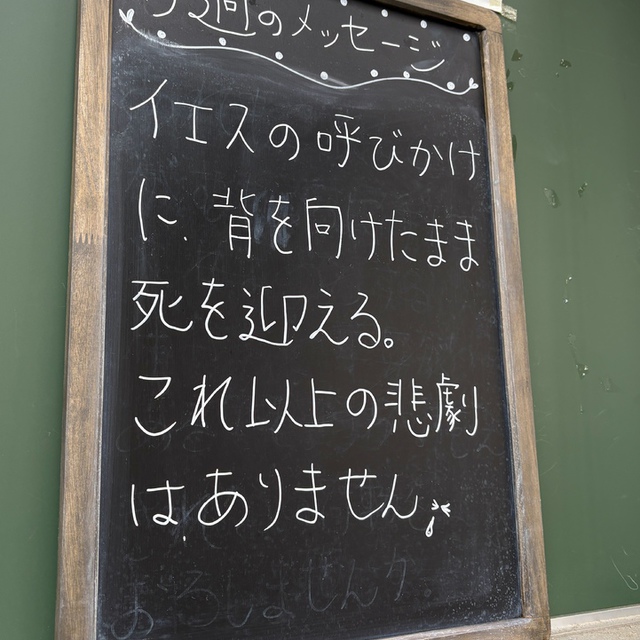 今週のメッセージ
イエスの呼びかけ
に、背を向けたまま
死を迎える。
これ以上の悲劇
は、ありません